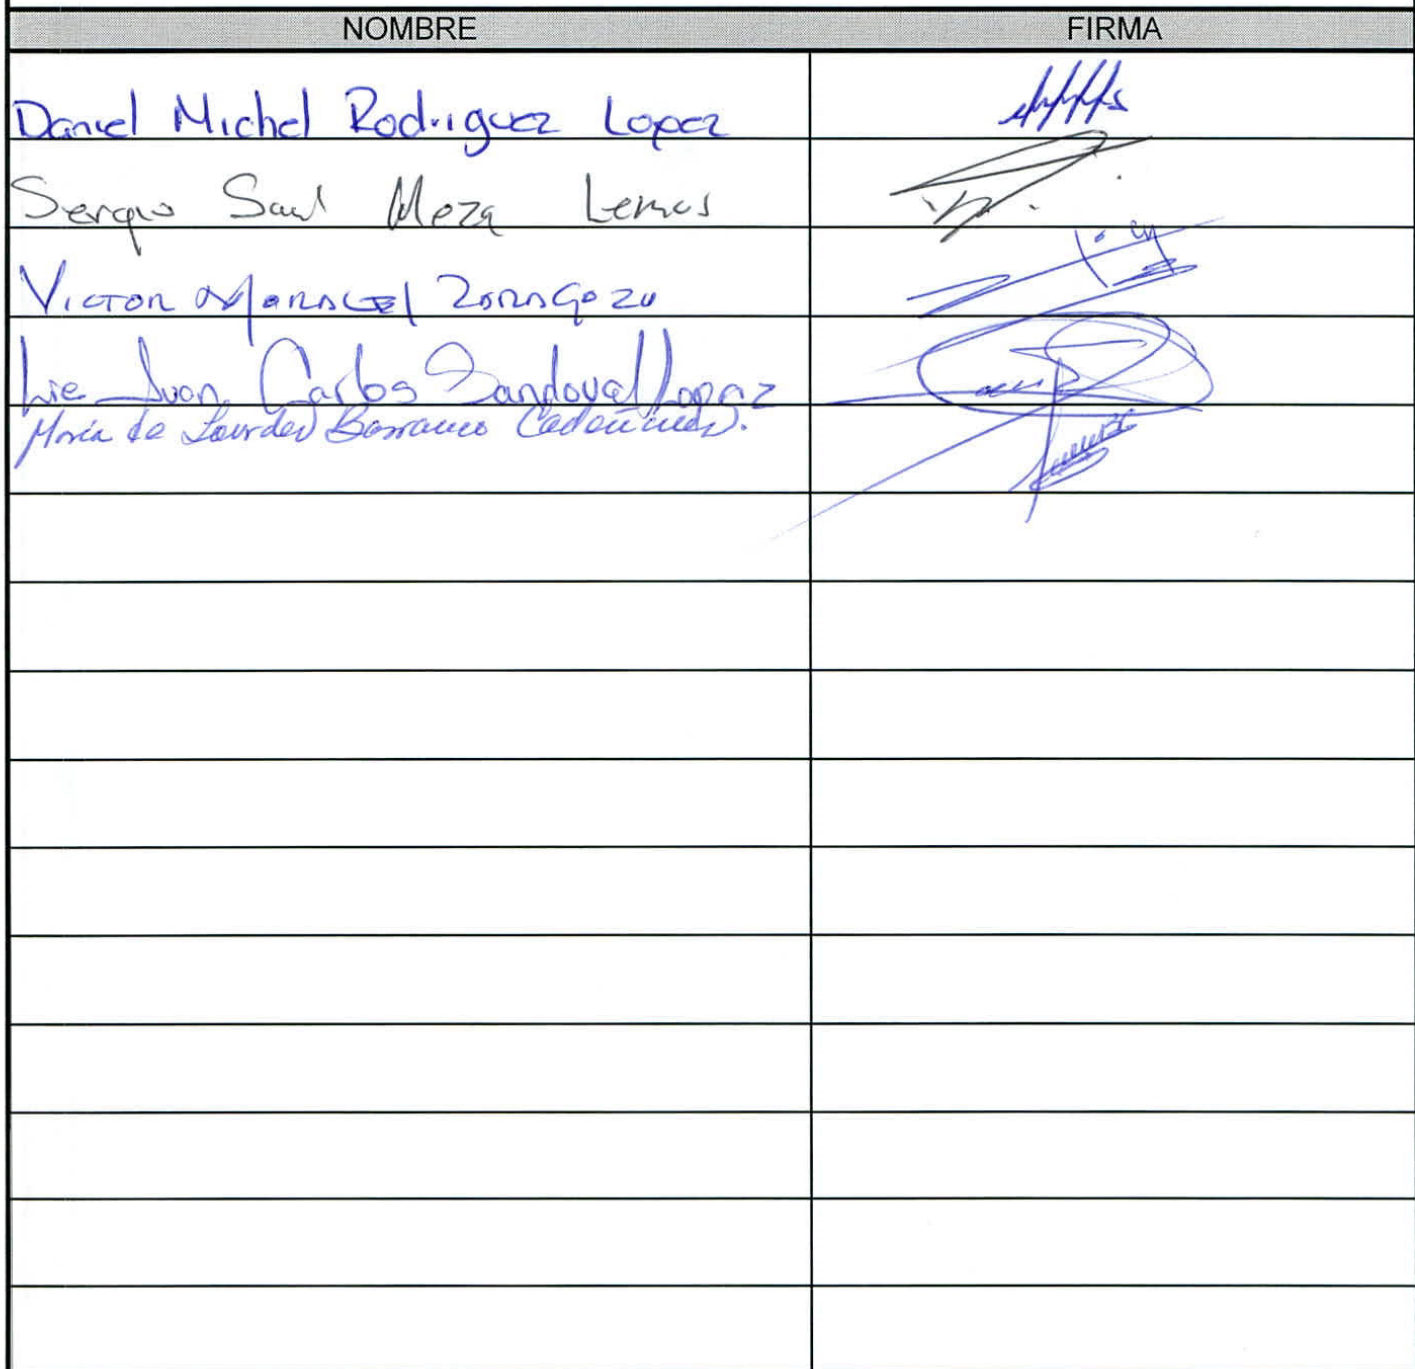 NOMBRE FIRMA
Daniel Michel Rodriguez Lopez
Sergio Saul Meza Lemus
Victor Zaragoza
Lic Juan Carlos Sandoval Lopez
María de Lourdes Barranco